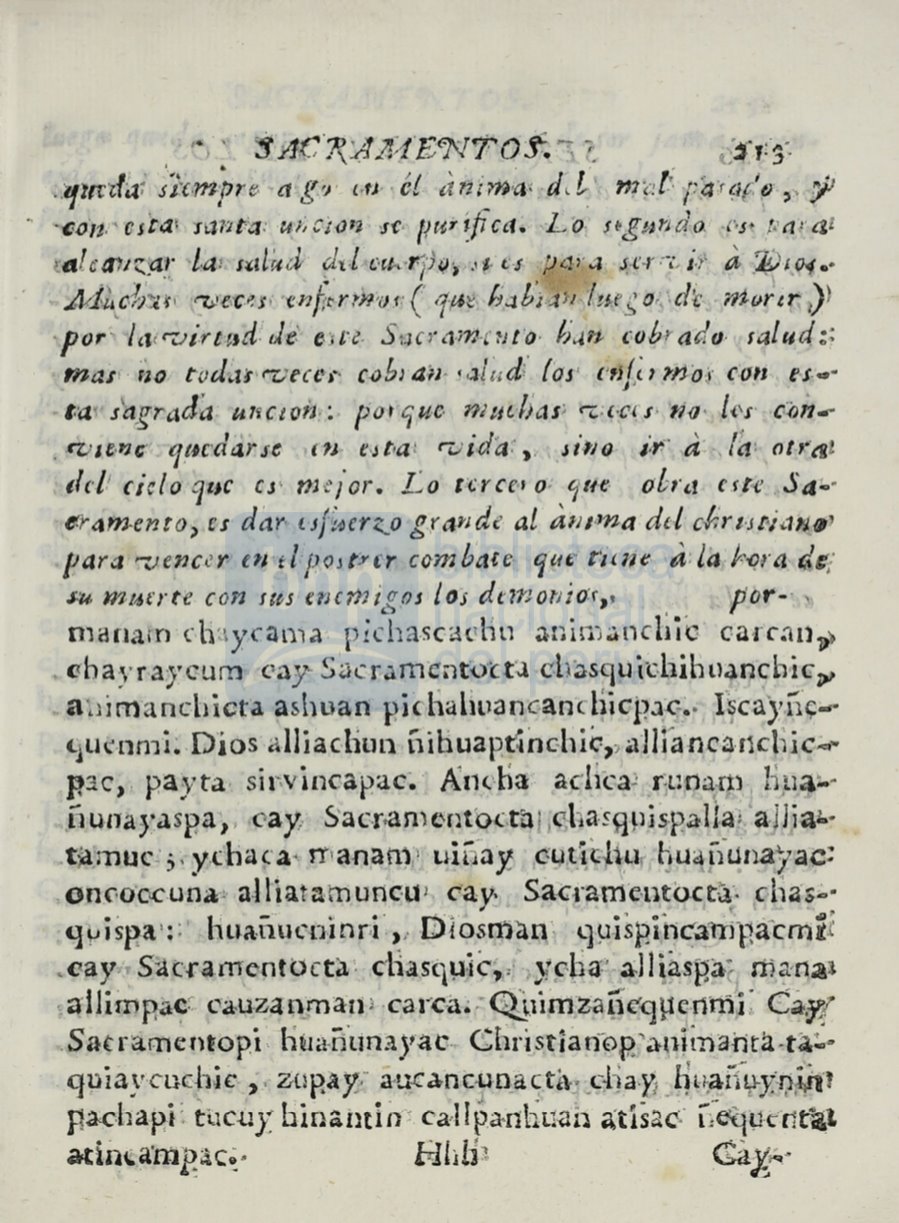 SACRAMENTOS. 213
queda siempre algo en él ànima del mal pasado, y
con esta santa uncion se purifica. Lo segundo es para
alcanzar la salud del cuerpo, si es para servir à Dios.
Muchas veces enfermos ( que habian luego de morir )
por la virtud de este Sacramento han cobrado salud:
mas no todas veces cobran salud los enfermos con es-
ta sagrada uncion: porque muchas veces no les con-
viene quedarse en esta vida, sino ir à la otra
del cielo que es mejor. Lo tercero que obra este Sa-
cramento, es dar esfuerzo grande al ànima del christiano
para vencer en el postrer combate que tiene à la hora de
su muerte con sus enemigos los demonios, por-
manam chaycama pichascachu animanchic carcan,
chayraycum cay Sacramentocta chasquichihuanchic,
animanchicta ashuan pichahuancanchicpac. Iscayñe-
quenmi. Dios alliachun ñihuaptinchic, alliancanchic-
pac, payta sirvincapac. Ancha achca runam hua-
ñunayaspa, cay Sacramentocta chasquispalla allia-
tamuc; ychaca manam uiñay cutichu huañunayac
oncoccuna alliatamuncu cay Sacramentocta chas-
quispa: huañueninri, Diosman quispincampacmi
cay Sacramentocta chasquic, ycha alliaspa mana
allimpac cauzanman carca. Quimzañequenmi Cay
Sacramentopi huañunayac Christianop animanta ta-
quiaycuchic, zupay aucancunacta chay huañuynin
pachapi tucuy hinantin callpanhuan atisac ñequenta
atincampac. Hhh Cay-